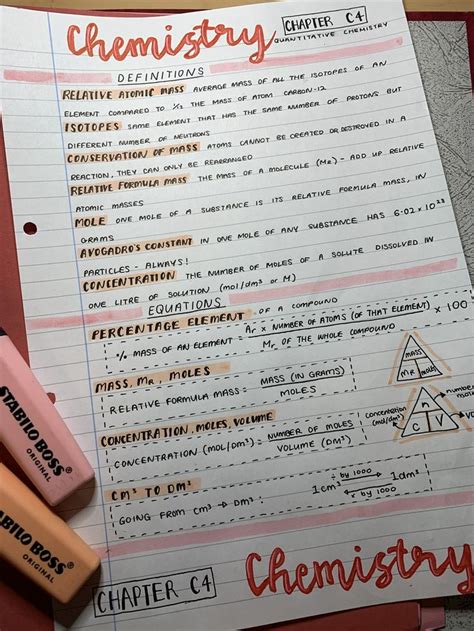 Chemistry
CHAPTER C4
QUANTITATIVE CHEMISTRY
DEFINITIONS
RELATIVE ATOMIC MASS AVERAGE MASS OF ALL THE ISOTOPES OF AN
ELEMENT COMPARED TO THE MASS OF ATOM CARBON-12
ISOTOPES SAME ELEMENT THAT HAS THE SAME NUMBER OF PROTONS BUT
DIFFERENT NUMBER OF NEUTRONS
CONSERVATION OF MASS ATOMS CANNOT BE CREATED OR DESTROYED IN A
REACTION, THEY CAN ONLY BE REARRANGED
RELATIVE FORMULA MASS THE MASS OF A MOLECULE (Mr) - ADD UP RELATIVE
ATOMIC MASSES
MOLE ONE MOLE OF A SUBSTANCE IS ITS RELATIVE FORMULA MASS, IN
GRAMS
AVOGADRO'S CONSTANT IN ONE MOLE OF ANY SUBSTANCE HAS 6.02 x 10²³
PARTICLES - ALWAYS!
CONCENTRATION THE NUMBER OF MOLES OF A SOLUTE DISSOLVED IN
ONE LITRE OF SOLUTION (mol/dm³ or M)
EQUATIONS
PERCENTAGE ELEMENT OF A COMPOUND
% MASS OF AN ELEMENT: Ar x NUMBER OF ATOMS (OF THAT ELEMENT) x 100
Mr OF THE WHOLE COMPOUND
MASS, Mr, MOLES
RELATIVE FORMULA MASS = MASS (IN GRAMS)
MOLES
MASS
Mr moles
CONCENTRATION, MOLES, VOLUME
CONCENTRATION (MOL/DM³) = NUMBER OF MOLES
VOLUME (DM³)
concentration
(mol/dm³)
number
n
C V
CM³ TO DM³
GOING FROM CM³ → DM³:
÷ by 1000
1cm³ 1dm³
x by 1000
CHAPTER C4
Chemistry
STABILO BOSS
ORIGINAL
STABILO BOSS
ORIGINAL